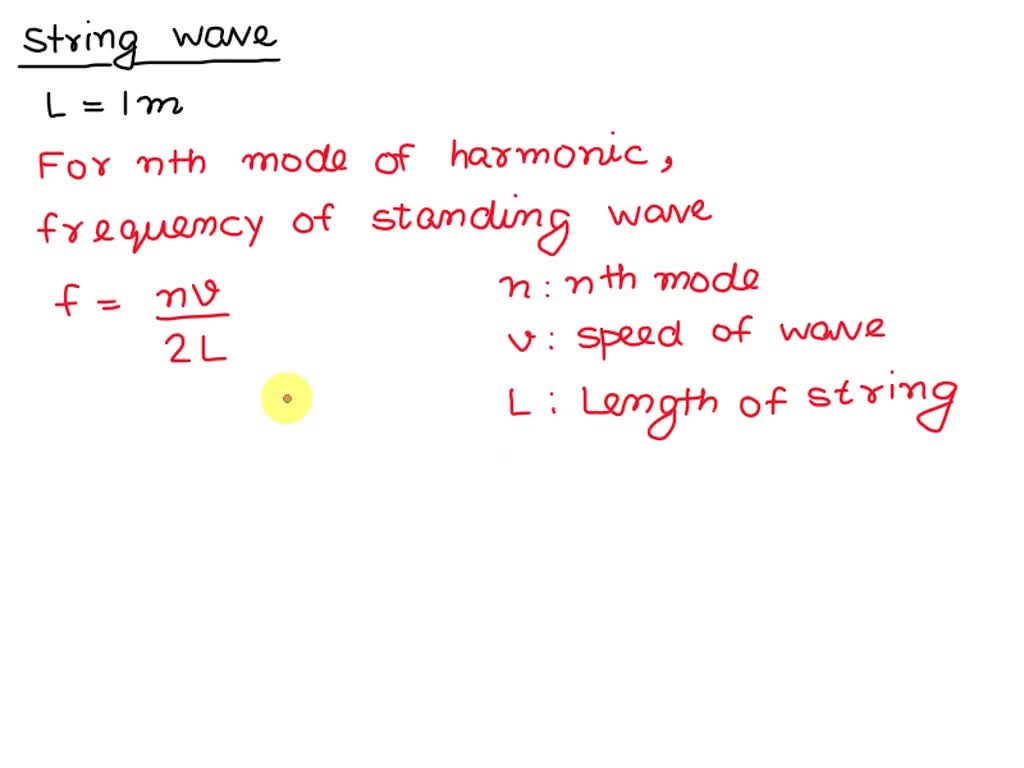 String wave
L = 1m
For nth mode of harmonic,
frequency of standing wave
f = nv / 2L
n : nth mode
v : speed of wave
L : Length of string